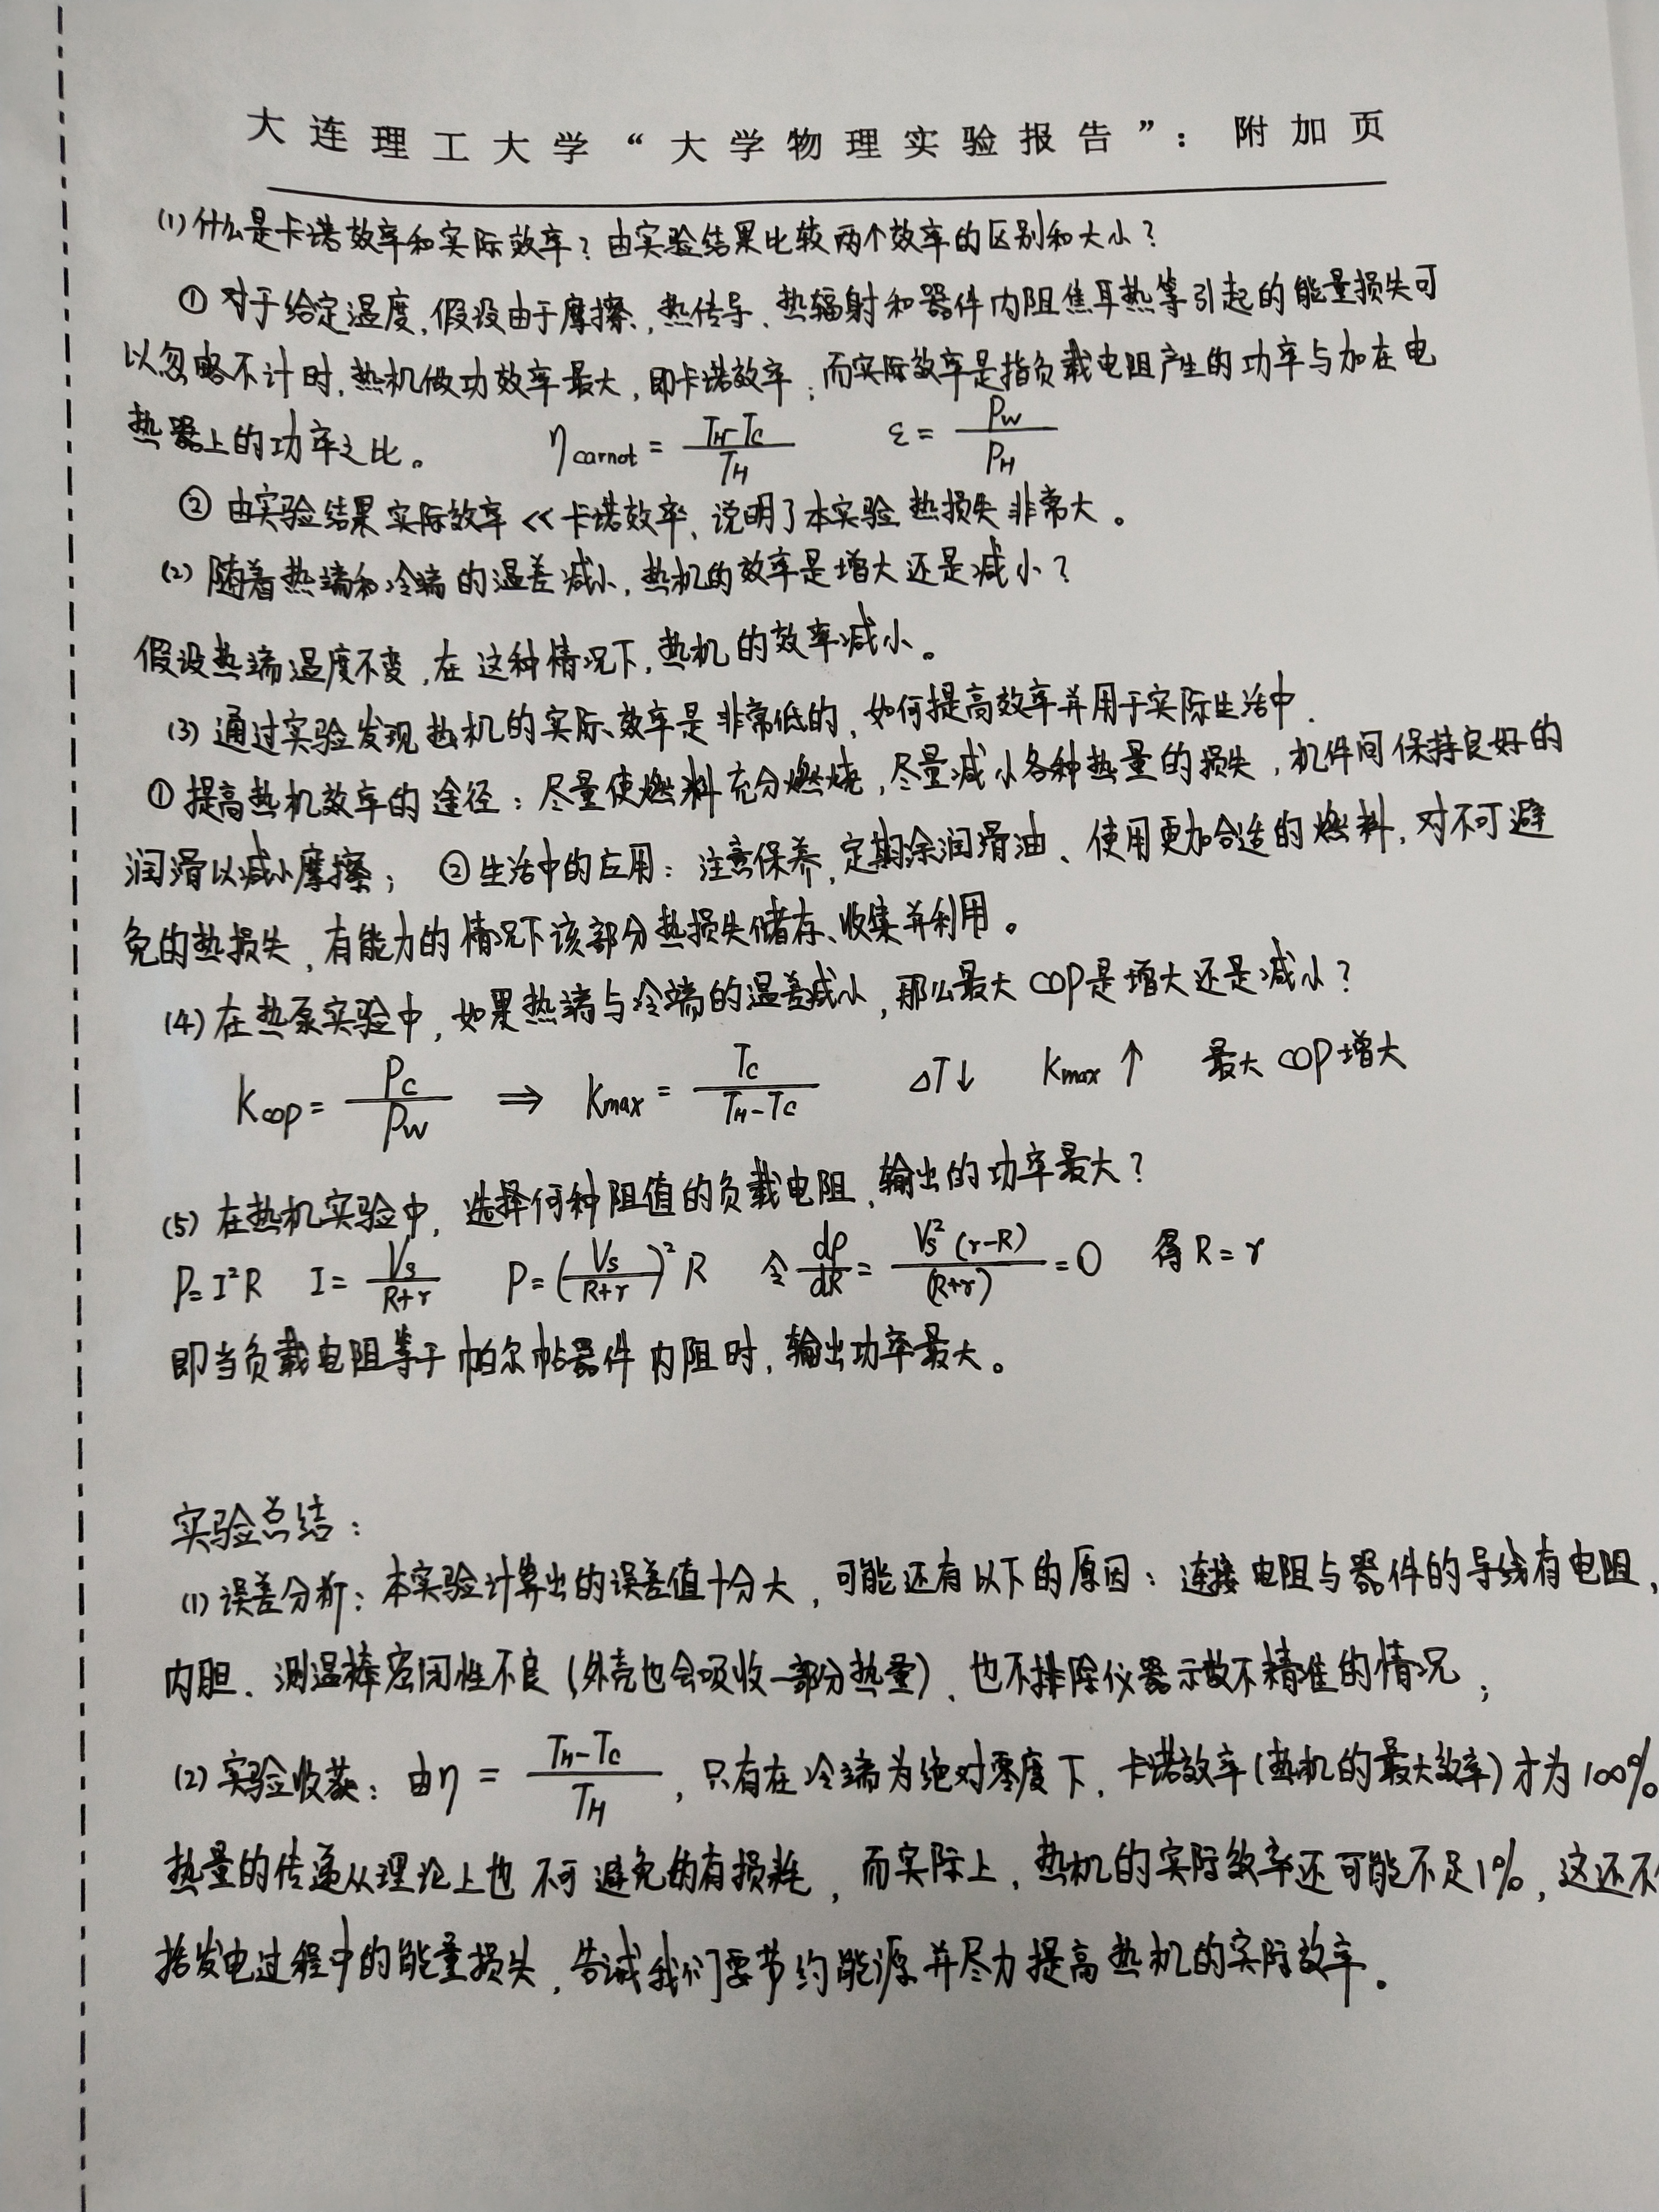 大连理工大学“大学物理实验报告”：附加页
(1) 什么是卡诺效率和实际效率？由实验结果比较两个效率的区别和大小？
① 对于给定温度，假设由于摩擦、热传导、热辐射和器件内阻焦耳热等引起的能量损失可
以忽略不计时，热机做功效率最大，即卡诺效率；而实际效率是指负载电阻产生的功率与加在电
热器上的功率之比。 η carnot = (TH-TC)/TH ε = PW/PH
② 由实验结果实际效率 << 卡诺效率，说明了本实验热损失非常大。
(2) 随着热端和冷端的温差减小，热机的效率是增大还是减小？
假设热端温度不变，在这种情况下，热机的效率减小。
(3) 通过实验发现热机的实际效率是非常低的，如何提高效率并用于实际生活中.
① 提高热机效率的途径：尽量使燃料充分燃烧，尽量减小各种热量的损失，机件间保持良好的
润滑以减小摩擦； ② 生活中的应用：注意保养，定期涂润滑油、使用更加合适的燃料，对不可避
免的热损失，有能力的情况下该部分热损失储存、收集并利用。
(4) 在热泵实验中，如果热端与冷端的温差减小，那么最大COP是增大还是减小？
Kcop = PC/PW ⇒ Kmax = TC/(TH-TC) ΔT↓ Kmax↑ 最大COP增大
(5) 在热机实验中，选择何种阻值的负载电阻，输出的功率最大？
P=I²R I=VS/(R+r) P=(VS/(R+r))²R 令 dP/dR = VS²(r-R)/(R+r) = 0 得 R=r
即当负载电阻等于帕尔帖器件内阻时，输出功率最大。
实验总结：
(1) 误差分析：本实验计算出的误差值十分大，可能还有以下的原因：连接电阻与器件的导线有电阻，
内胆、测温棒密闭性不良（外壳也会吸收一部分热量）、也不排除仪器示数不精准的情况；
(2) 实验收获：由η = (TH-TC)/TH，只有在冷端为绝对零度下，卡诺效率（热机的最大效率）才为100%
热量的传递从理论上也不可避免的有损耗，而实际上，热机的实际效率还可能不足1%，这还不
括发电过程中的能量损失，告诫我们要节约能源并尽力提高热机的实际效率。